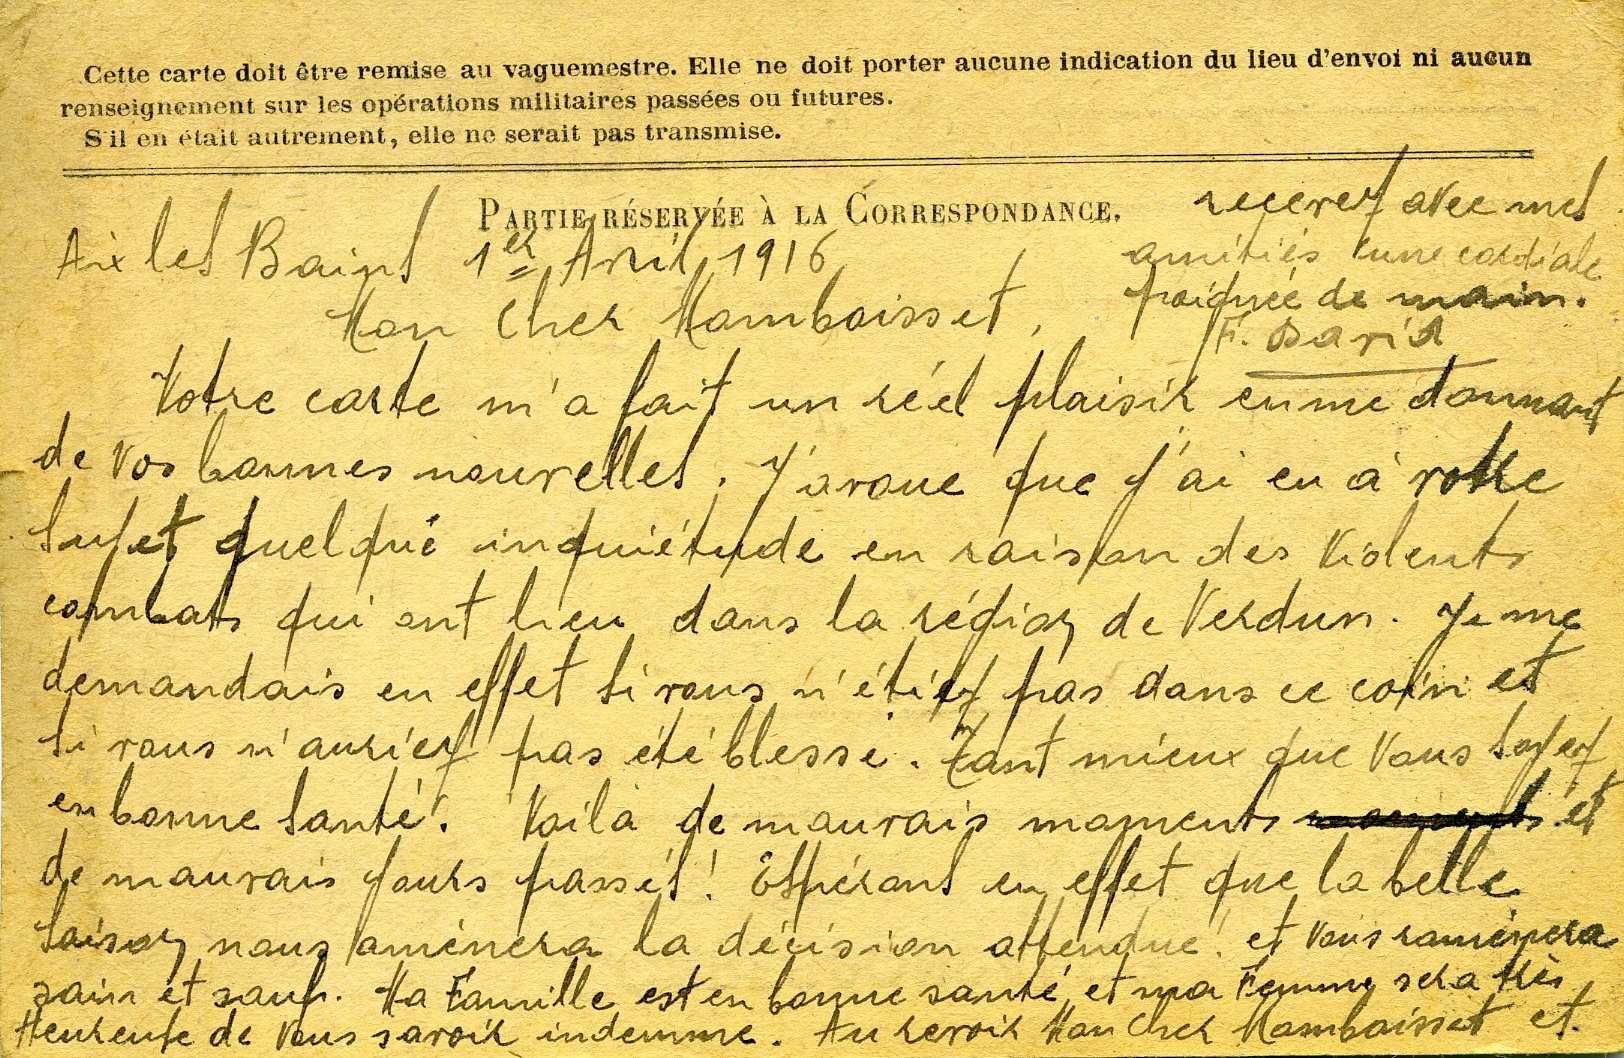 Cette carte doit être remise au vaguemestre. Elle ne doit porter aucune indication du lieu d'envoi ni aucun
renseignement sur les opérations militaires passées ou futures.
S'il en était autrement, elle ne serait pas transmise.
PARTIE RÉSERVÉE À LA CORRESPONDANCE.
Aix les Bains 1er Avril 1916
Mon Cher Mamboisset,
Votre carte m'a fait un réel plaisir en me donnant
de vos bonnes nouvelles. J'avoue que j'ai eu à votre
sujet quelque inquiétude en raison des violents
combats qui ont lieu dans la région de Verdun. Je me
demandais en effet si vous n'étiez pas dans ce coin et
si vous n'auriez pas été blessé. Tant mieux que vous soyez
en bonne santé. Voilà de mauvais moments et
de mauvais jours passés! Espérons en effet que la belle
saison nous amènera la décision attendue! et vous ramènera
sain et sauf. Ma Famille est en bonne santé et ma Femme sera très
Heureuse de vous savoir indemme. Au revoir Mon Cher Mamboisset et
recevez avec mes
amitiés une cordiale
poignée de main.
F. David